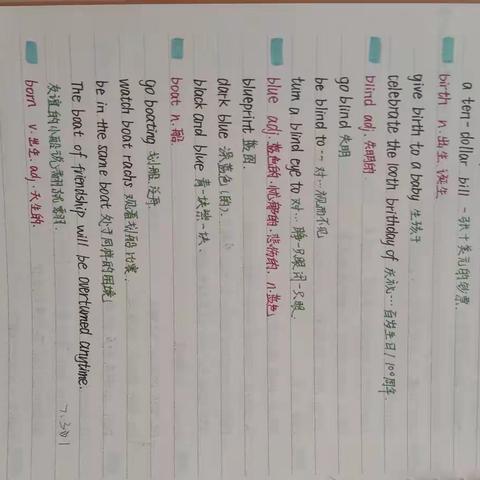 a ten-dollar bill 一张十美元的钞票.
birth n. 出生, 诞生
give birth to a baby 生孩子
celebrate the 100th brithday of 庆祝… 百岁生日/100周年.
blind adj. 失明的
go blind 失明
be blind to … 对…视而不见
turn a blind eye to 对… 睁一只眼闭一只眼.
blue adj. 蓝色的.忧郁的.悲伤的. n.蓝色
blueprint 蓝图.
dark blue 深蓝色(的).
black and blue 青一块紫一块.
boat n. 船.
go boating 划船
watch boat rachs 观看划船比赛.
be in the same boat 处于同样的困境
The boat of friendship will be overturned anytime.
友谊的小船说翻就翻.
born v. 出生. adj. 天生的.